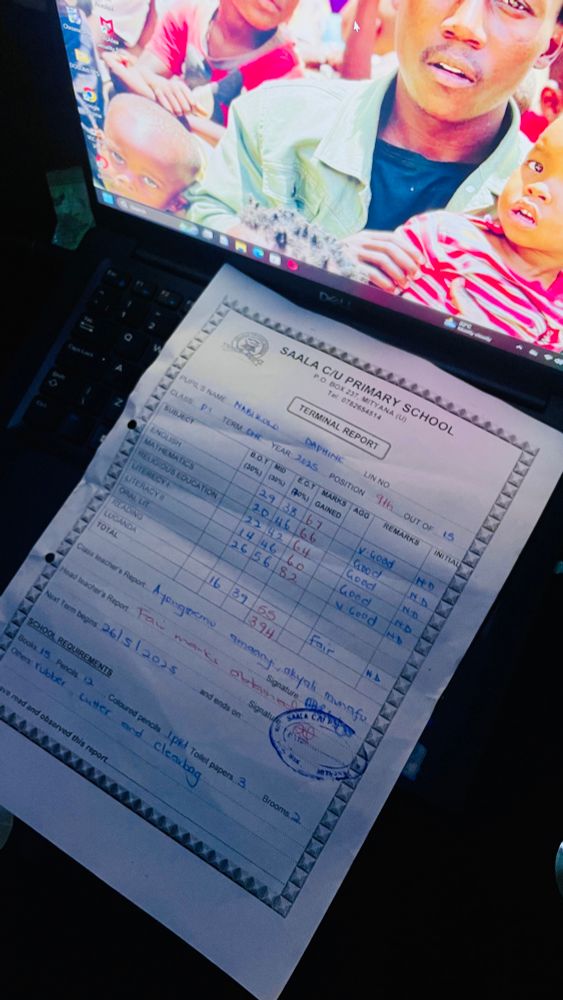 DELL
SAALA C/U PRIMARY SCHOOL
P.O. BOX 237, MITYANA (U)
Tel: 0782654514
TERMINAL REPORT
PUPIL'S NAME NABUKOLO DAPHINE LIN NO
CLASS P1 TERM ONE YEAR 2025 POSITION 9th OUT OF 15
SUBJECT B.O.T (30%) MID (30%) E.O.T MARKS GAINED AGG REMARKS INITIAL
ENGLISH 29 38 67 V. Good N.D
MATHEMATICS 20 46 66 Good N.D
RELIGIOUS EDUCATION 22 42 64 Good N.D
LITERACY I 14 46 60 Good N.D
LITERACY II 26 56 82 V Good N.D
ORAL LIT
READING
LUGANDA 16 39 55 Fair N.D
TOTAL 394
Class teacher's Report
Signature
Head teacher's Report Fair marks obtained
Signature
Next Term begins 26/5/2025 and ends on:
SCHOOL REQUIREMENTS
Books 15 Pencils 12 Coloured pencils 1pkt Toilet papers 3 Brooms 2
Others rubber cutter and clearbag
have read and observed this report